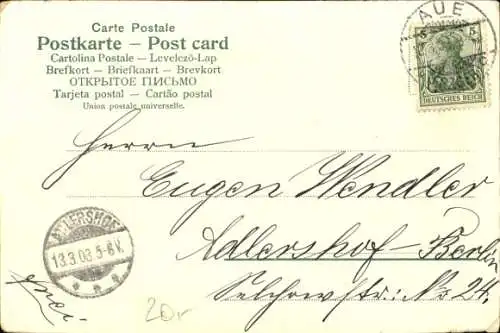 Carte Postale
Postkarte – Post card
Cartolina Postale – Levelező-Lap
Brefkort – Briefkaart – Brevkort
ОТКРЫТОЕ ПИСЬМО
Tarjeta postal – Cartão postal
Union postale universelle.
AUE
5 5
DEUTSCHES REICH
Herrn
Eugen Wendler
Adlershof-Berlin
ADLERSHOF
13.3.03 5-6V.
No 24.
20,-